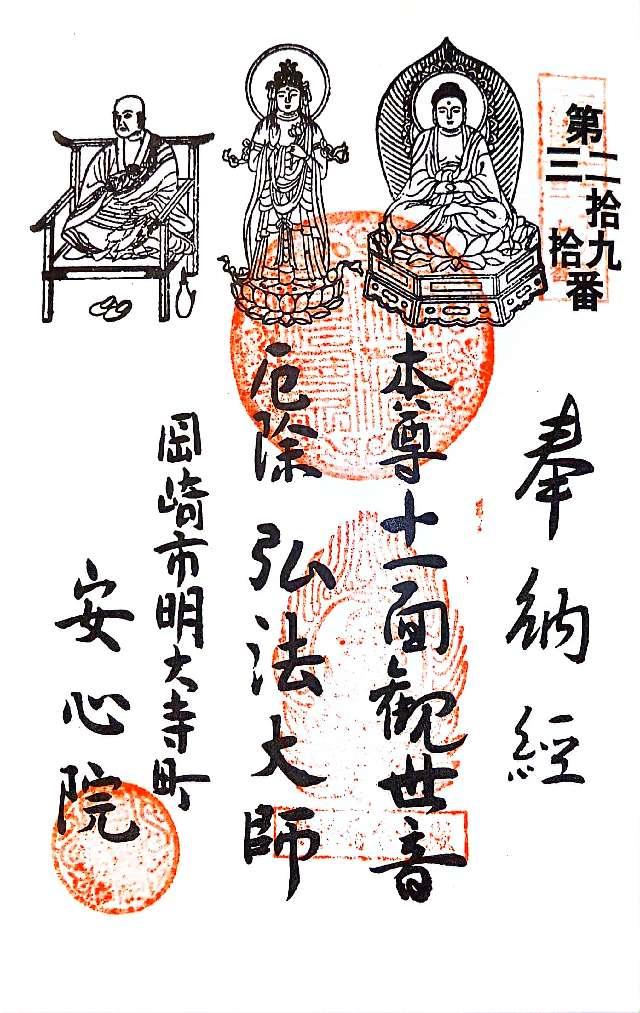 第二拾九
三拾番
奉納経
本尊十一面観世音
厄除 弘法大師
岡崎市明大寺町
安心院